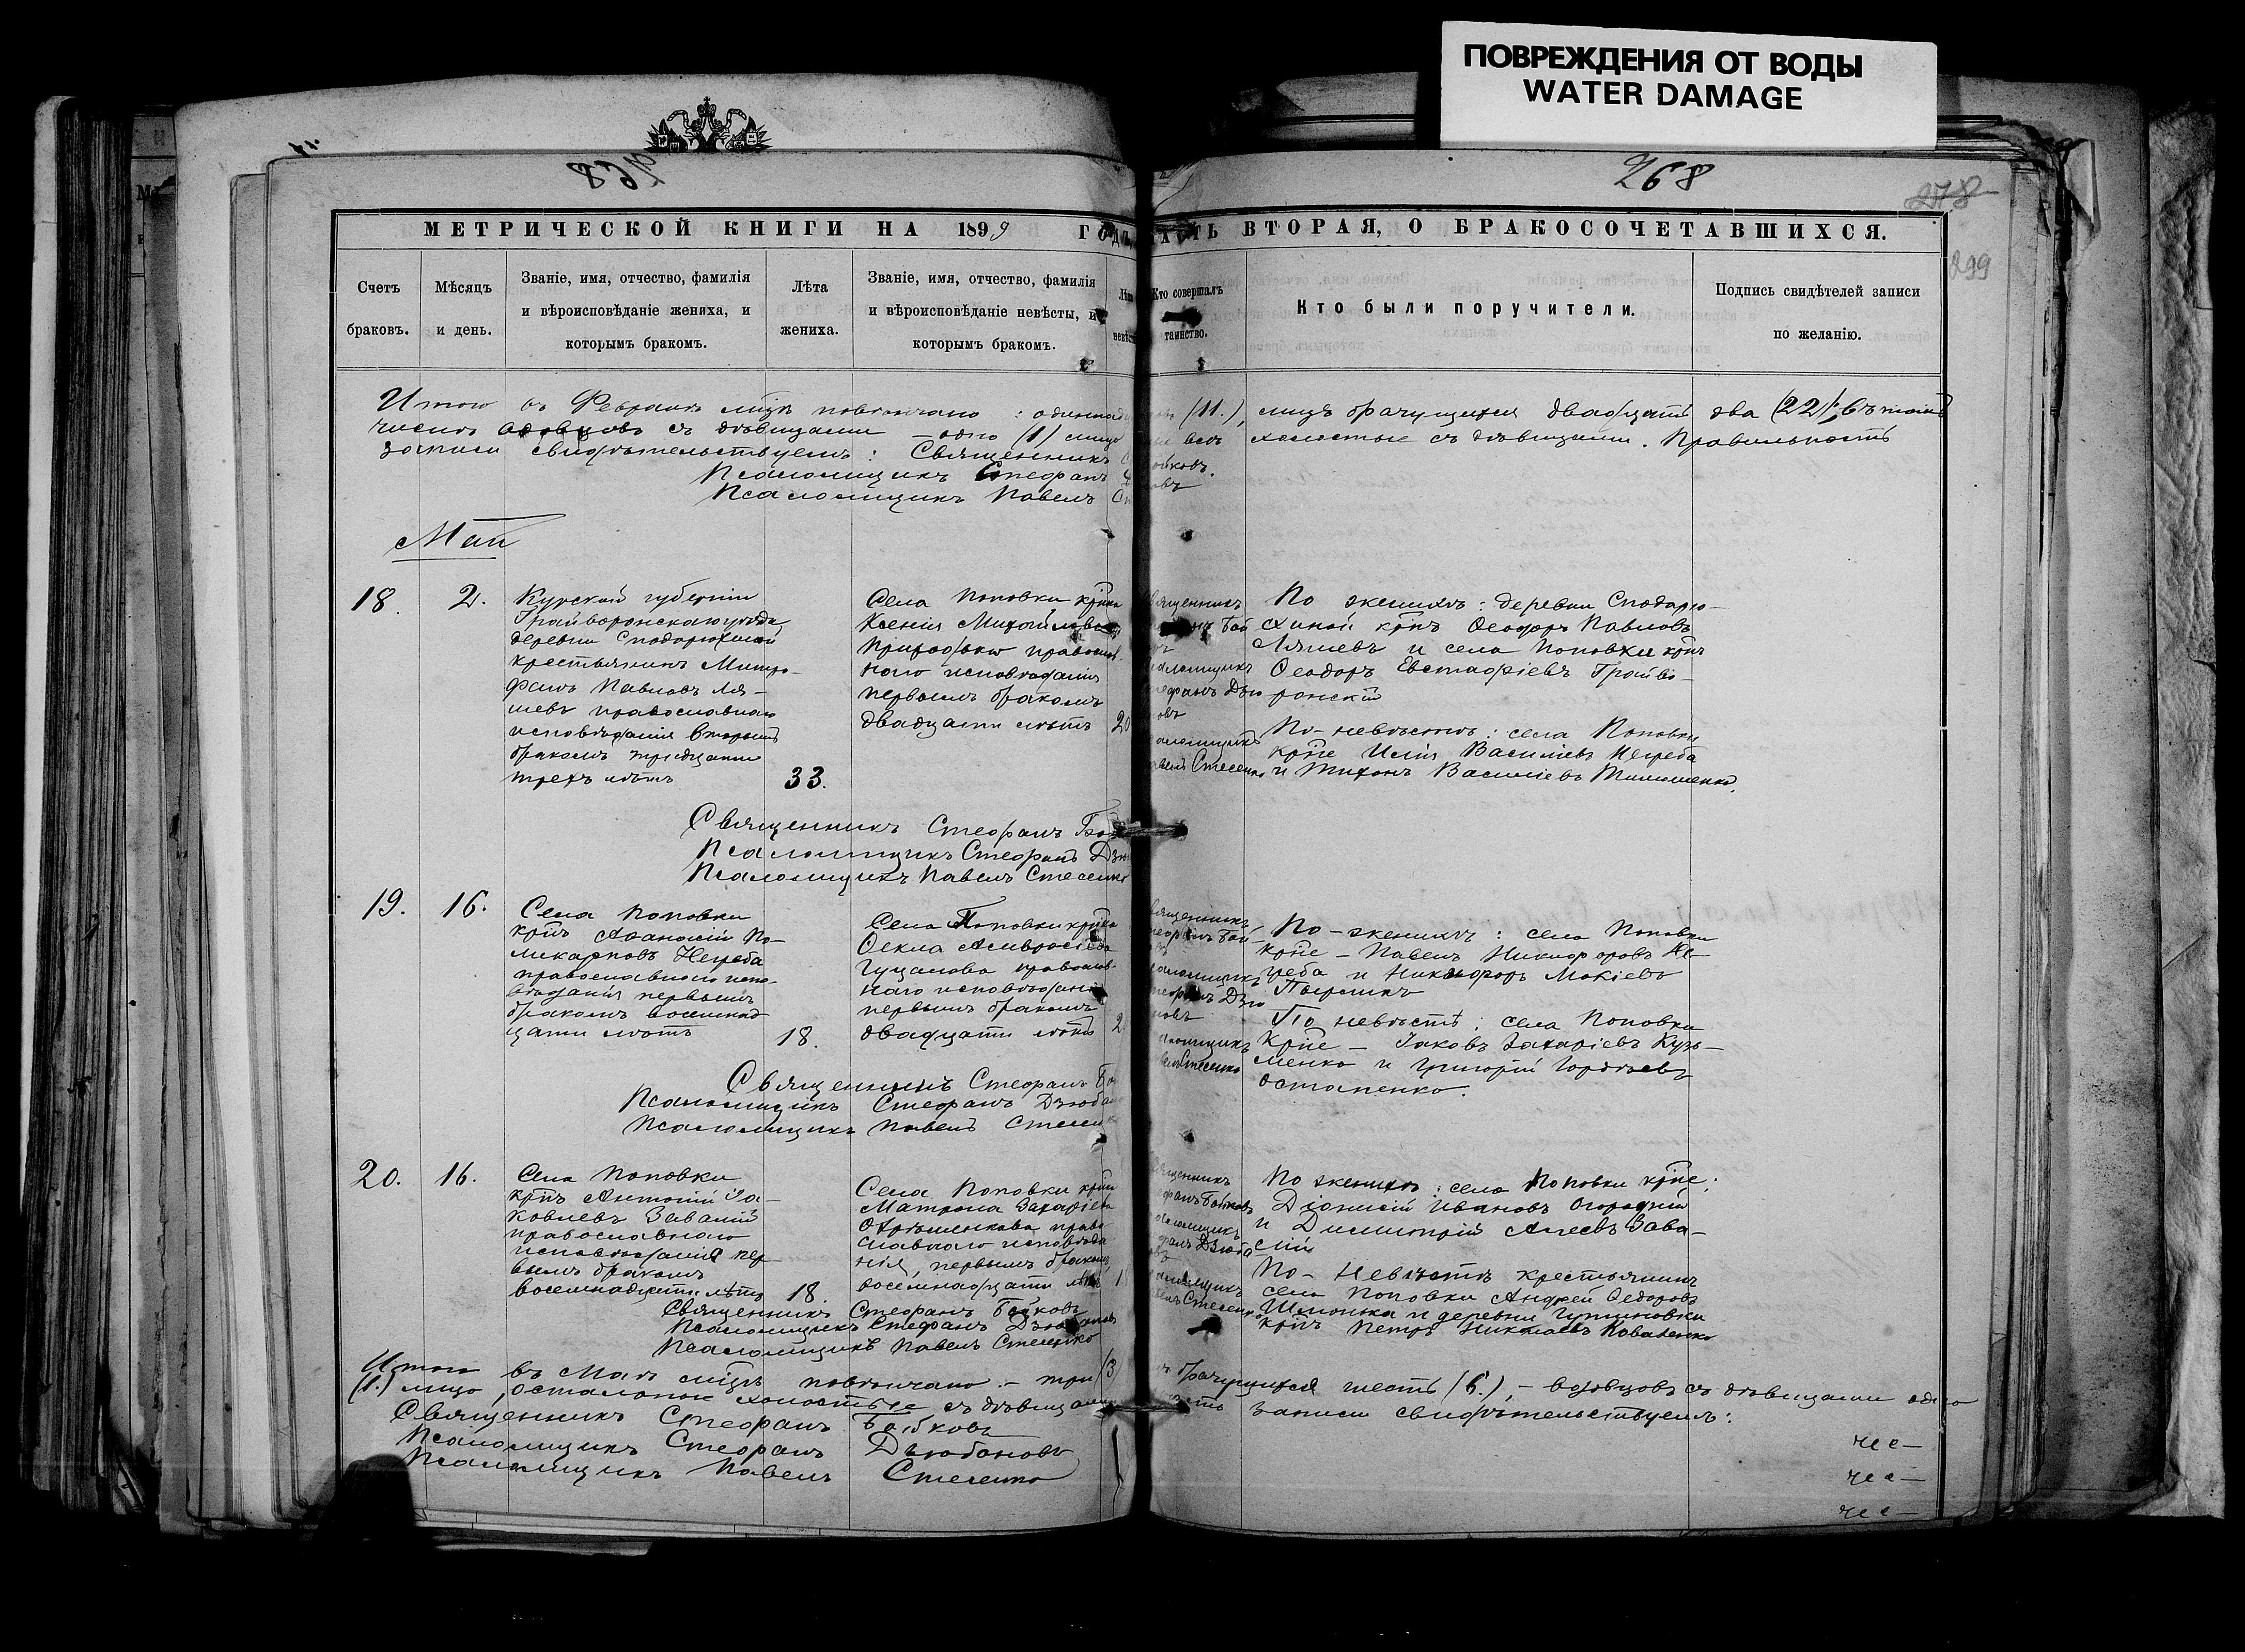 ПОВРЕЖДЕНИЯ ОТ ВОДЫ
WATER DAMAGE
268
278
299
МЕТРИЧЕСКОЙ КНИГИ НА 1899 ГОДЪ
ЧАСТЬ ВТОРАЯ, О БРАКОСОЧЕТАВШИХСЯ.
Счетъ
браковъ.
Мѣсяцъ
и день.
Званіе, имя, отчество, фамилія
и вѣроисповѣданіе жениха, и
которымъ бракомъ.
Лѣта
жениха.
Званіе, имя, отчество, фамилія
и вѣроисповѣданіе невѣсты, и
которымъ бракомъ.
Кто совершалъ
таинство.
Кто были поручители.
Подпись свидѣтелей записи
по желанію.
Итого въ Февралѣ мцѣ повѣнчано: (11.), лицъ брачущихся двадцать два (22); въ томъ
числѣ вдовцовъ съ дѣвицами – одно (1) лицо холостые съ дѣвицами. Правильность
записи свидѣтельствуемъ: Священникъ
Псаломщикъ Стефанъ
Псаломщикъ Павелъ
Май
18.
2.
Курской губерніи
Грайворонскаго уѣзда,
деревни Сподарюшиной
крестьянинъ Митро-
фанъ Павловъ Ля-
шевъ православнаго
исповѣданія вторымъ
бракомъ тридцати
трехъ лѣтъ
33.
Села Поповки
Ксенія Михайлова
Приходько
наго исповѣданія
первымъ бракомъ
двадцати лѣтъ
20
По женихѣ: деревни Сподарю-
шиной крнъ Ѳеодоръ Павловъ
Ляшевъ и села Поповки крнъ
Ѳеодоръ Евстафіевъ Грайво-
ронскій
По невѣстѣ: села Поповки
крне Илія Василіевъ Негреба
и Тихонъ Василіевъ Тимошенко.
Священникъ Стефанъ
Псаломщикъ Стефанъ
Псаломщикъ Павелъ Стесенко
19.
16.
Села Поповки
крнъ Аѳанасій По-
ликарповъ Негреба
православнаго испо-
вѣданія первымъ
бракомъ восемнад-
цати лѣтъ
18.
Села Поповки
Ѳекла Амвросіева
Гуцалова
наго исповѣданія
первымъ бракомъ
двадцати лѣтъ
По-женихѣ: села Поповки
крне – Павелъ Никифоровъ Не-
греба и Никифоръ Мокіевъ
По невѣстѣ: села Поповки
Крне – Іаковъ Захаріевъ Кузь-
менко и Григорій Гордѣевъ
Остапенко.
Священникъ Стефанъ
Псаломщикъ Стефанъ
Псаломщикъ Павелъ
20.
16.
Села Поповки
крнъ Антоній Іа-
ковлевъ Завалій
православнаго
исповѣданія пер-
вымъ бракомъ
восемнадцати лѣтъ
18.
Села Поповки
Матрона Захаріева
Охрѣменкова право-
славнаго исповѣда-
нія, первымъ бракомъ,
восемнадцати лѣтъ
По женихѣ: села Поповки крне:
Діонисій Ивановъ Огородній
и Димитрій Зава-
лій
По-невѣстѣ крестьянинъ
села Поповки Андрей Ѳедоровъ
и деревни
крнъ Петръ Николаевъ Коваленко
Священникъ Стефанъ Бойковъ
Псаломщикъ Стефанъ
Псаломщикъ Павелъ Стесенко
Итого въ Маѣ мцѣ повѣнчано – три (3) брачущихся шесть (6.), – вдовцовъ съ дѣвицами одно
(1.) лицо, остальные холостые съ дѣвицами записи свидѣтельствуемъ:
Священникъ Стефанъ Бойковъ
Псаломщикъ Стефанъ Дзюбановъ
Псаломщикъ Павелъ Стесенко